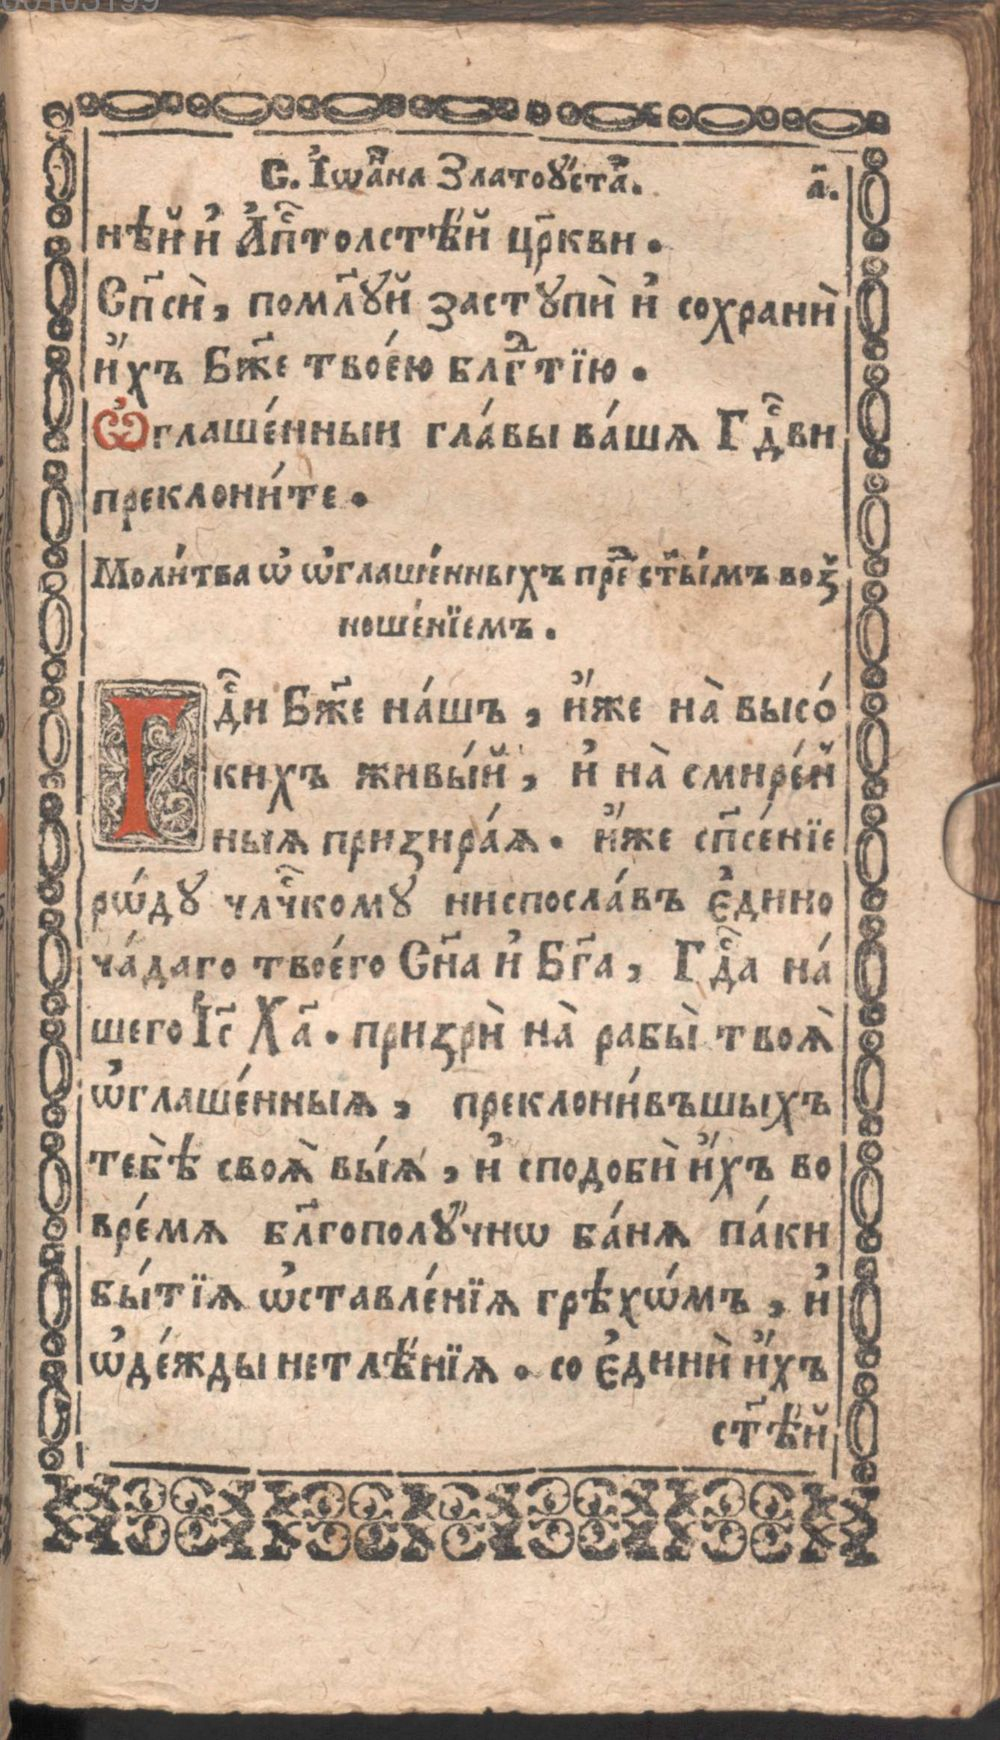 С. І҆ѡа́нна Златоꙋ́стаⷢ. а҃.
нѣ́й и҆ А҆пⷭ҇толстѣ́й цр҃кви.
Сп҃сѝ, помл҃ꙋй застꙋпѝ и҆ сохранѝ
и҆́хъ Бж҃е твое́ю блгⷣтїю.
Ѽглаше́нныи гла́вы ва́шѧ Гдⷭ҇ви
преклони́те.
Моли́тва ѡ҆ ѡ҆глаше́нныхъ преⷣ ст҃ы́мъ воⷥ
ноше́нїемъ.
Гдⷭ҇и Бж҃е на́шъ, и҆́же на̀ высо́
кихъ живы́й, и҆ на̀ смире́н
ныѧ призира́ѧ. и҆́же сп҃се́нїе
рѡ́дꙋ члч҃комꙋ ниспосла́въ є҆дино
ча́даго твое́го Сн҃а и҆ Бг҃а, Гдⷭ҇а на́
шего І҆с҃ Ха҃. призрѝ на̀ рабы̀ твоѧ̀
ѡ҆глаше́нныѧ, преклони́въшыхъ
тебѣ̀ своѧ̀ вы́ѧ, и҆ сподобѝ и҆́хъ во
вре́мѧ бл҃гополꙋ́чнѡ ба́нѧ па́ки
бы́тїѧ ѡ҆ставле́нїѧ грѣхѡ́мъ, и҆
ѡ҆де́жды нетлѣ́нїѧ. со є҆динѝ и҆́хъ
ст҃ѣ́й